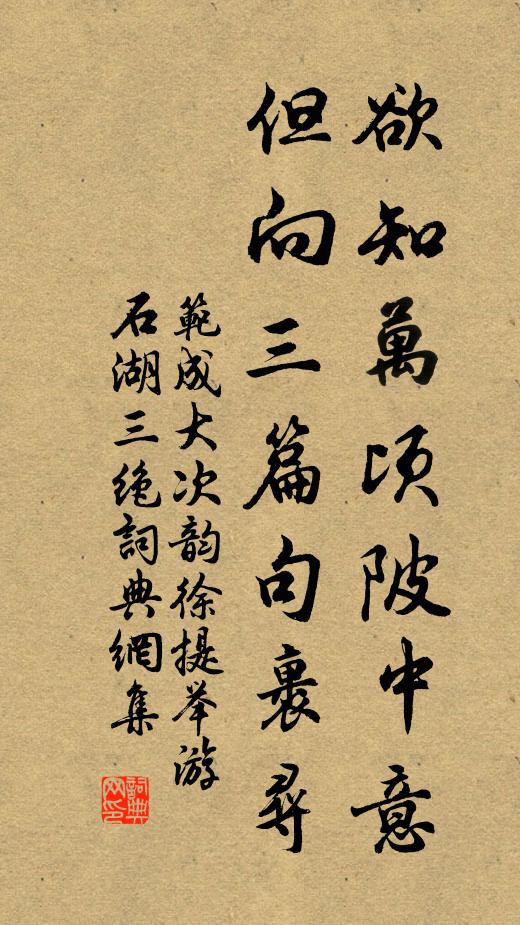 欲知萬頃陂中意
但向三篇句裏尋
範成大次韵徐提举游
石湖三绝詞典網集
詞典
网印